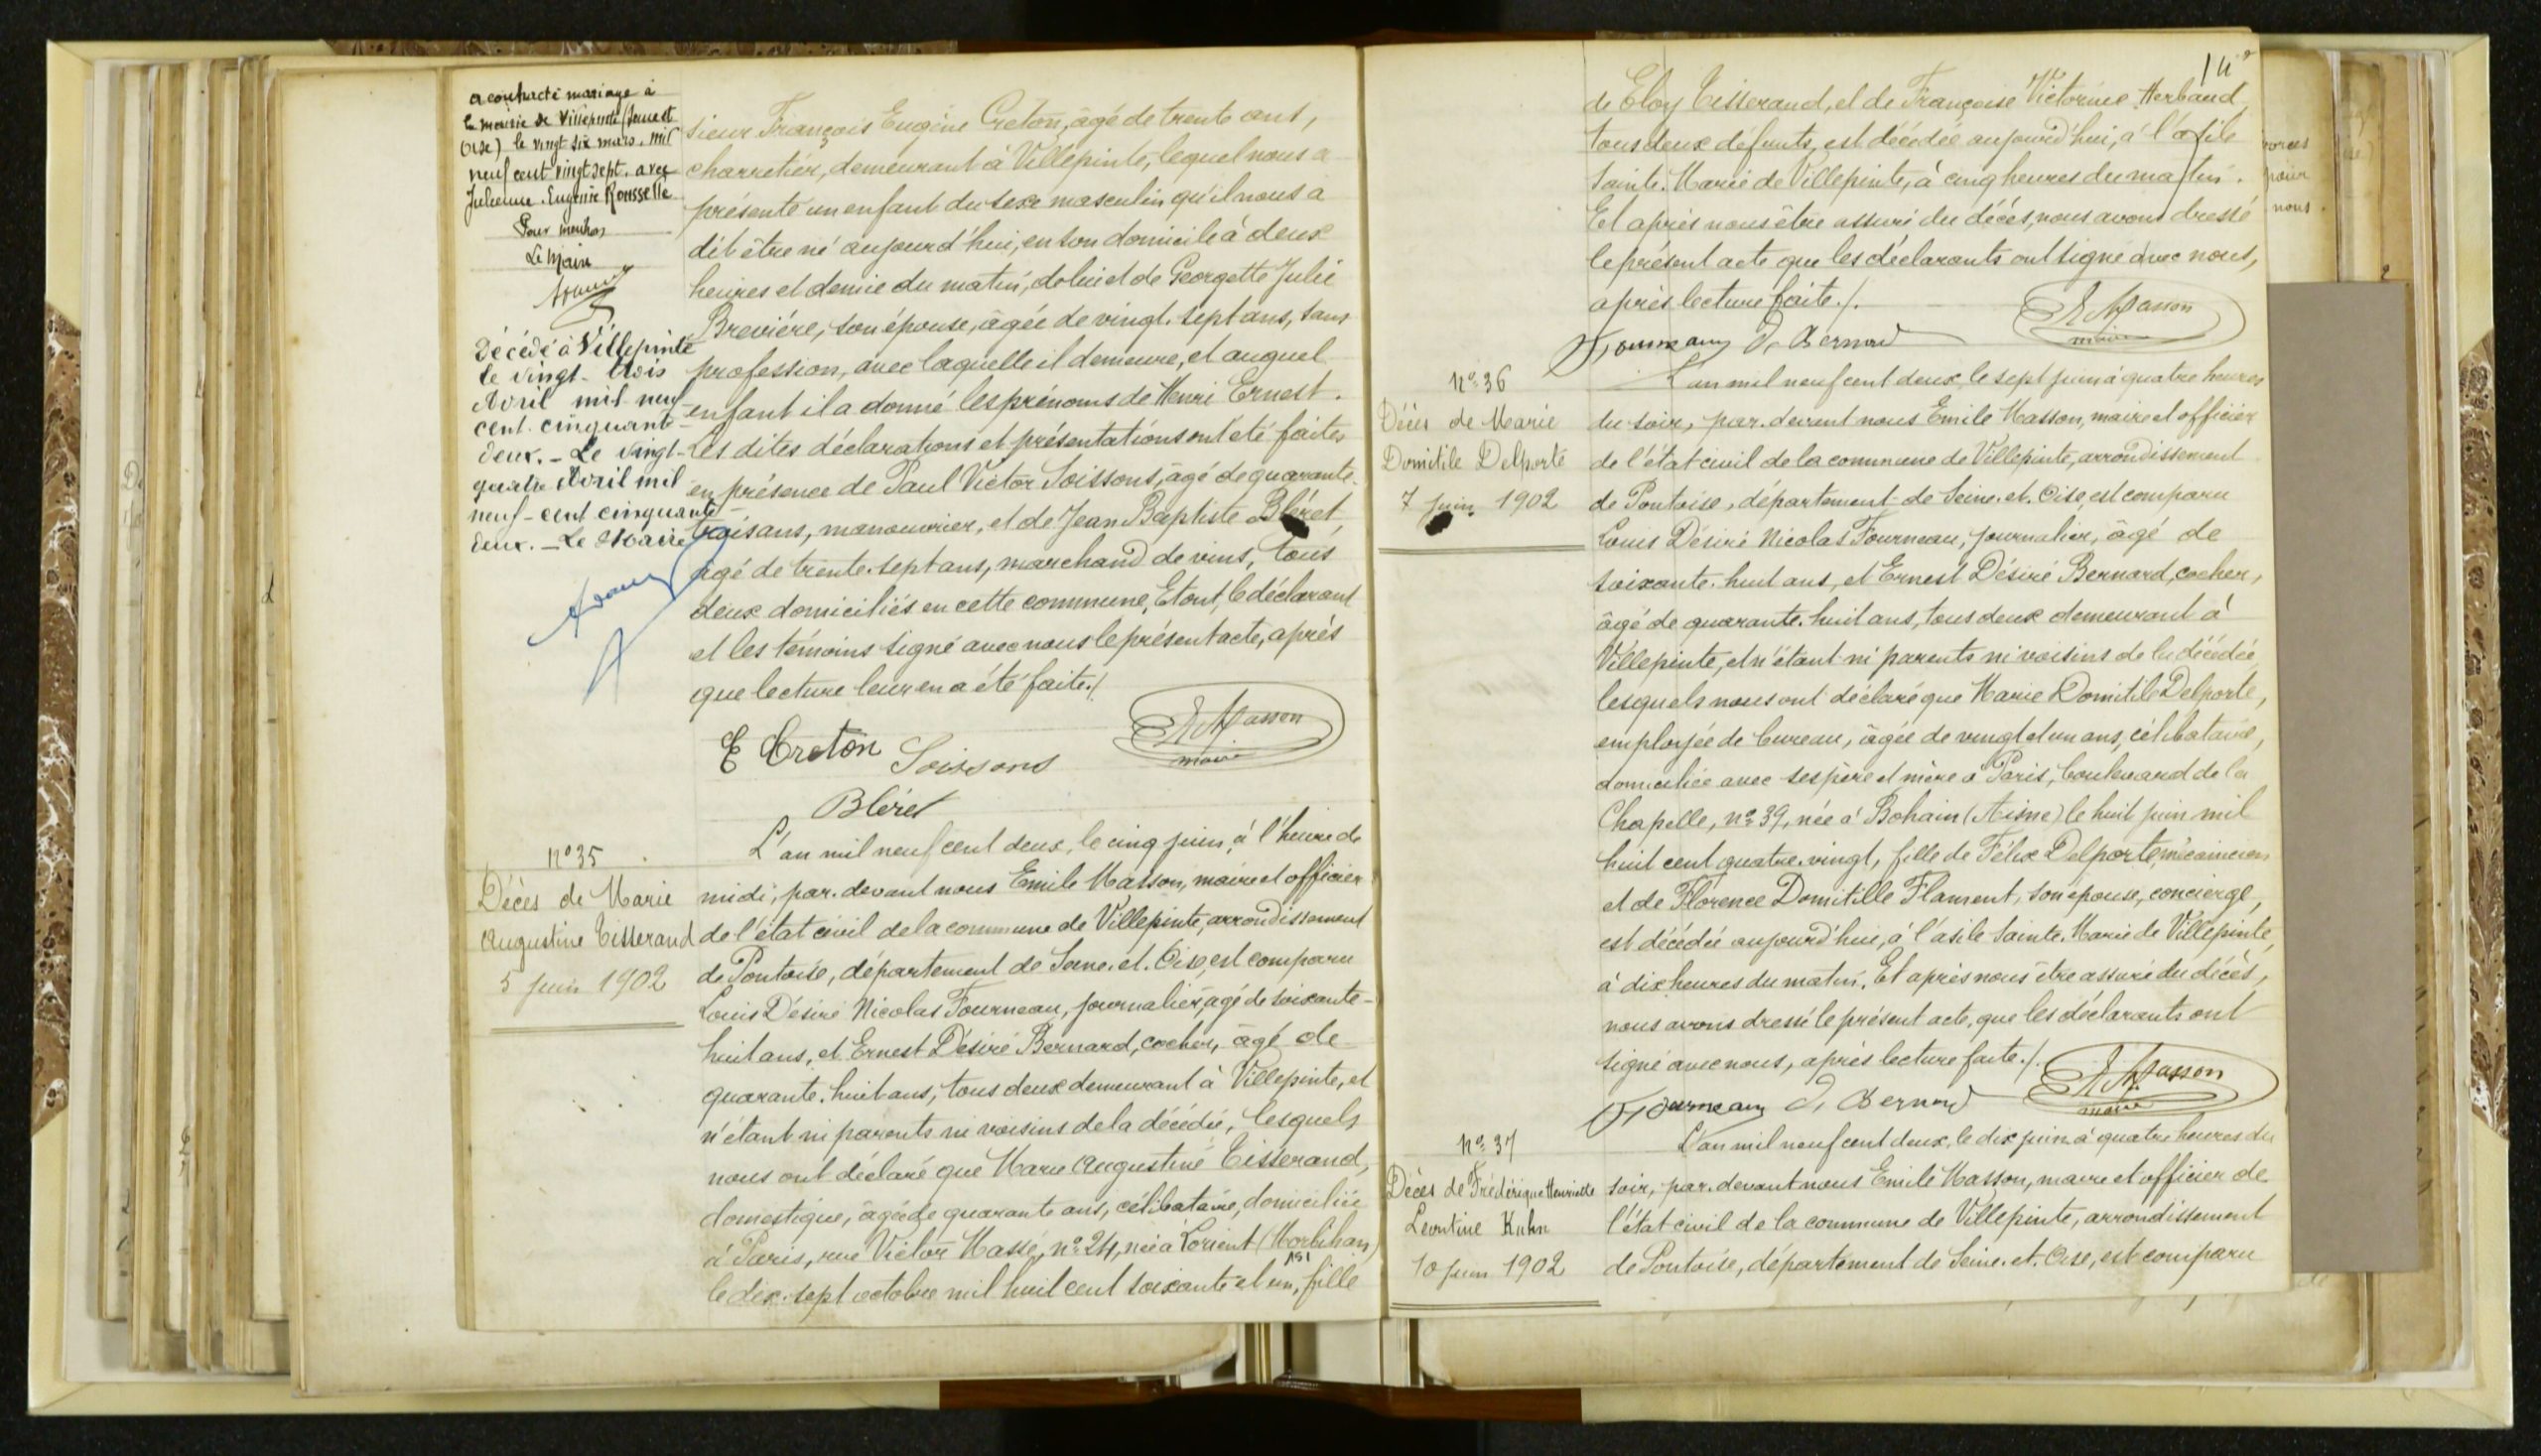 a contracté mariage à
la mairie de Villepinte (Seine et
Oise) le vingt six mars, mil
neuf cent vingt sept. avec
Julienne Eugénie Rousselle
Pour mention
Le Maire
Décédé à Villepinte
le vingt-trois
Avril mil neuf
cent. cinquante-
deux. - Le vingt-
quatre Avril mil
neuf-cent cinquante-
deux. - Le Maire
sieur François Eugène Creton, âgé de trente ans,
charretier, demeurant à Villepinte, lequel nous a
présenté un enfant du sexe masculin qu'il nous a
dit être né aujourd'hui, en son domicile à deux
heures et demie du matin, de lui et de Georgette Julie
Brevière, son épouse, âgée de vingt-sept ans, sans
profession, avec laquelle il demeure, et auquel
enfant il a donné les prénoms de Henri Ernest.
Les dites déclarations et présentations ont été faites
en présence de Paul Victor Soissons, âgé de quarante-
trois ans, manouvrier, et de Jean Baptiste Bléret,
âgé de trente-sept ans, marchand de vins, tous
deux domiciliés en cette commune, Et ont, le déclarant
et les témoins signé avec nous le présent acte, après
que lecture leur en a été faite./.
E Creton Soissons
E Masson
maire
Bléret
N° 35
Décès de Marie
Augustine Tisserand
5 juin 1902
L'an mil neuf cent deux, le cinq juin, à l'heure de
midi, par-devant nous Emile Masson, maire et officier
de l'état civil de la commune de Villepinte, arrondissement
de Pontoise, département de Seine-et-Oise, est comparu
Louis Désiré Nicolas Fourneau, journalier, âgé de soixante-
huit ans, et Ernest Désiré Bernard, cocher, âgé de
quarante-huit ans, tous deux demeurant à Villepinte, et
n'étant ni parents ni voisins de la décédée, lesquels
nous ont déclaré que Marie Augustine Tisserand,
domestique, âgée de quarante ans, célibataire, domiciliée
à Paris, rue Victor Massé, n° 24, née à Lorient (Morbihan)
le dix-sept octobre mil huit cent soixante et un, fille
de Eloy Tisserand, et de Françoise Victorine Herbaud,
tous deux défunts, est décédée aujourd'hui, à l'asile
Sainte-Marie de Villepinte, à cinq heures du matin.
Et après nous être assuré du décès, nous avons dressé
le présent acte que les déclarants ont signé avec nous,
après lecture faite./.
E Masson
maire
Fourneau D. Bernard
N° 36
Décès de Marie
Domitile Delporte
7 juin 1902
L'an mil neuf cent deux, le sept juin à quatre heures
du soir, par-devant nous Emile Masson, maire et officier
de l'état civil de la commune de Villepinte, arrondissement
de Pontoise, département de Seine-et-Oise, est comparu
Louis Désiré Nicolas Fourneau, journalier, âgé de
soixante-huit ans, et Ernest Désiré Bernard, cocher,
âgé de quarante-huit ans, tous deux demeurant à
Villepinte, et n'étant ni parents ni voisins de la décédée,
lesquels nous ont déclaré que Marie Domitile Delporte,
employée de bureau, âgée de vingt et un ans, célibataire,
domiciliée avec ses père et mère à Paris, boulevard de la
Chapelle, n° 39, née à Bohain (Aisne) le huit juin mil
huit cent quatre-vingt, fille de Félix Delporte, mécanicien
et de Florence Domitille Flament, son épouse, concierge,
est décédée aujourd'hui, à l'asile Sainte-Marie de Villepinte,
à dix heures du matin. Et après nous être assuré du décès,
nous avons dressé le présent acte, que les déclarants ont
signé avec nous, après lecture faite./.
E Masson
maire
Fourneau D. Bernard
N° 37
Décès de Frédérique Henriette
Léontine Kuhn
10 juin 1902
L'an mil neuf cent deux, le dix juin à quatre heures du
soir, par-devant nous Emile Masson, maire et officier de
l'état civil de la commune de Villepinte, arrondissement
de Pontoise, département de Seine-et-Oise, est comparu